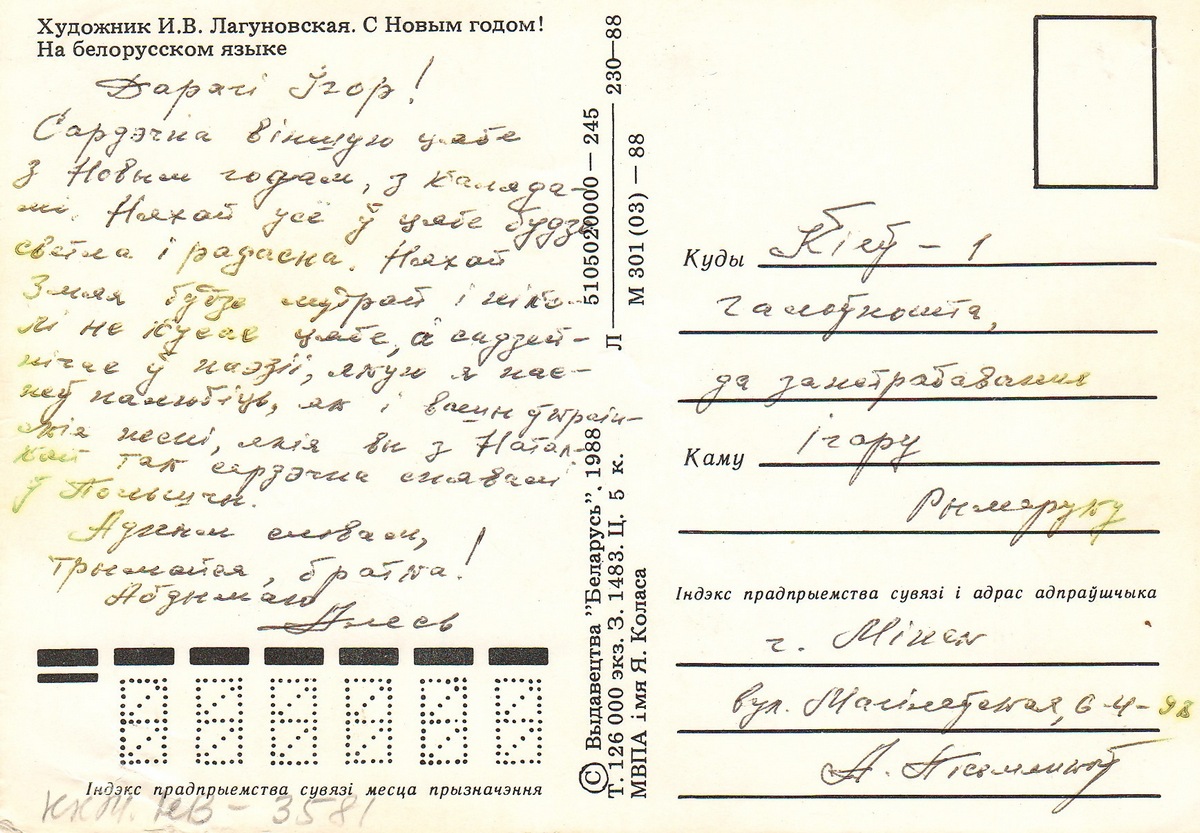 Художник И.В. Лагуновская. С Новым годом!
На белорусском языке
Дарагі Ігор!
Сардэчна віншую цябе
з Новым годам, з Каляда-
мі. Няхай усё ў цябе будзе
светла і радасна. Няхай
Змяя будзе мудрай і ніко-
лі не кусае цябе, а садзей-
нічае ў паэзіі, якую я пас-
пеў палюбіць, як і вашы ўкраін-
скія песні, якія вы з Натал-
кай так сардэчна спявалі
ў Польшчы.
Адным словам,
трымайся, братка!
Абдымаю
Алесь
Індэкс прадпрыемства сувязі месца прызначэння
ККМ. КВ - 3581
© Выдавецтва "Беларусь". 1988
Л 5105020000—245 230—88
Т. 126 000 экз. З. 1483. Ц. 5 к.
М 301 (03) — 88
МВПА імя Я. Коласа
Куды Кіеў - 1
Галоўпошта,
да запатрабавання
Каму Ігару
Рымаруку
Індэкс прадпрыемства сувязі і адрас адпраўшчыка
г. Мінск
вул. 6-4-98
А. Пісьмянкоў